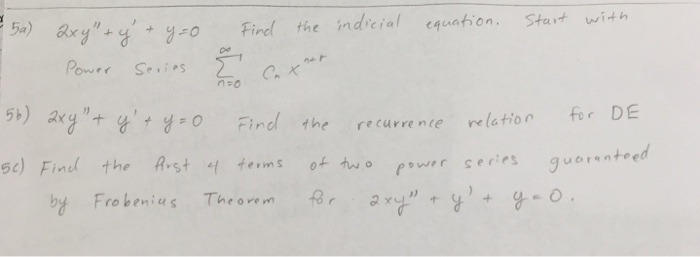 5a) 2xy" + y' + y=0 Find the indicial equation. Start with
Power Series ∞ Σ n=0 Cₙ xⁿ⁺ʳ
5b) 2xy" + y' + y=0 Find the recurrence relation for DE
5c) Find the first 4 terms of two power series guaranteed
by Frobenius Theorem for 2xy" + y' + y=0.